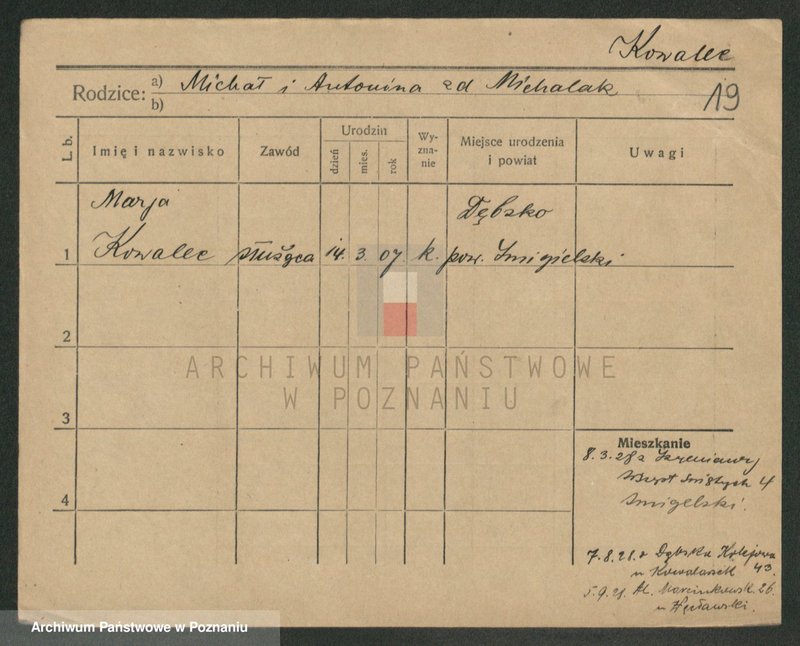 Kowalec
Rodzice: a) Michał i Antonina zd Michalak
b)
19
L. b.
Imię i nazwisko
Zawód
Urodzin
dzień
mies.
rok
Wy-
zna-
nie
Miejsce urodzenia
i powiat
Uwagi
Marja
Dębsko
1 Kowalec służąca 14. 3. 07 k. pow. Śmigielski
2
ARCHIWUM PAŃSTWOWE
W POZNANIU
3
Mieszkanie
8.3.28 z
Świętych 4
Śmigielski.
4
7.8.28. Kolejowa
u Kowalarek 43.
5.9. Al. Marcinkowsk. 26
u
Archiwum Państwowe w Poznaniu